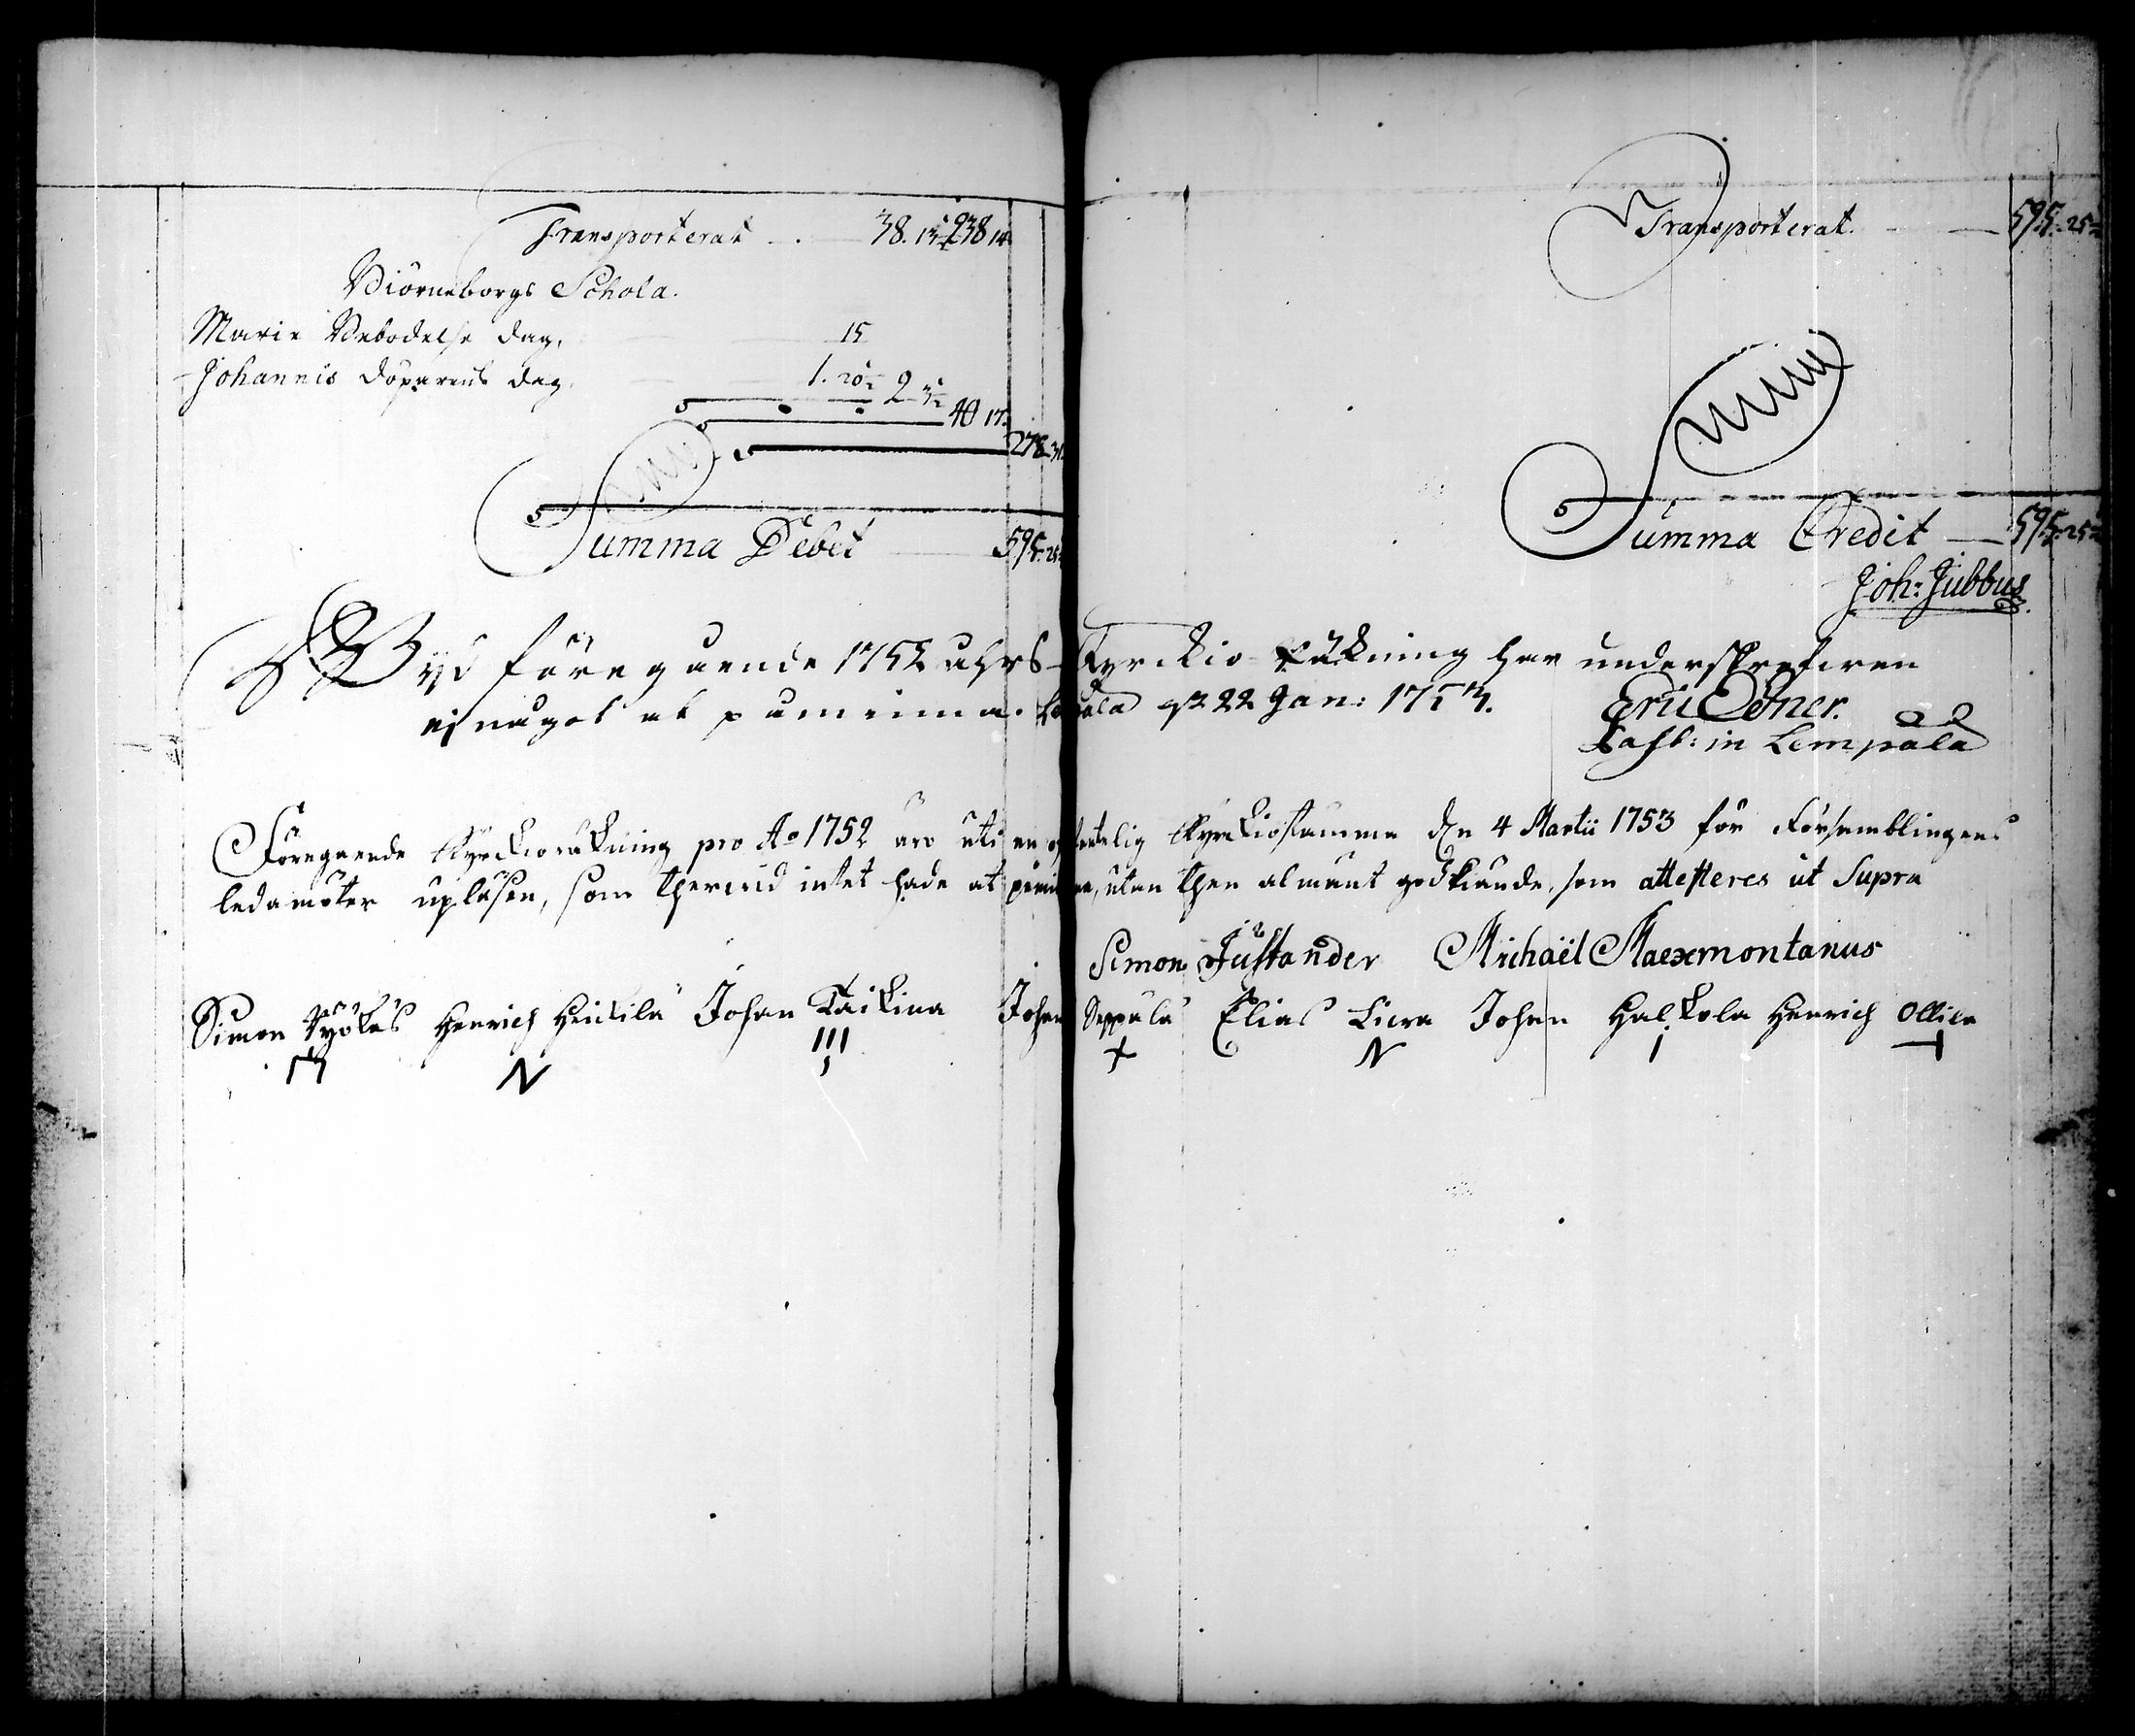 Transporterat . . 38. 13½ 238 14
Biörneborgs Schola.
Mariæ Bebodelse dag, 15
Johannis döparens dag, 1. 20½ 2 3½
40 17.
278 31
Summa Debet 595. 25
Transporterat. 595. 25
Summa Credit 595. 25
Joh: Jubbus
Wyd föregående 1752 åhrs Kyrckio Räkning har underskrefwen
ej något at påminna. Lempälä d 22 Jan: 1753. Eric Ebner.
in Lempälä
Föregående Kyrckioräkning pro Ao 1752 uti en offentelig Kyrckiostämma den 4 Martii 1753 för Församblingens
ledamöter upläsen, som therwid intet hade at påminna, utan then almänt godkände, som attesteres ut Supra
Simon Justander Michaël Maexmontanus
Simon Henrich Heickilä Johan Taikina Johan Seppälä Elias Liera Johan Halkola Henrich Ollila
N III + N I